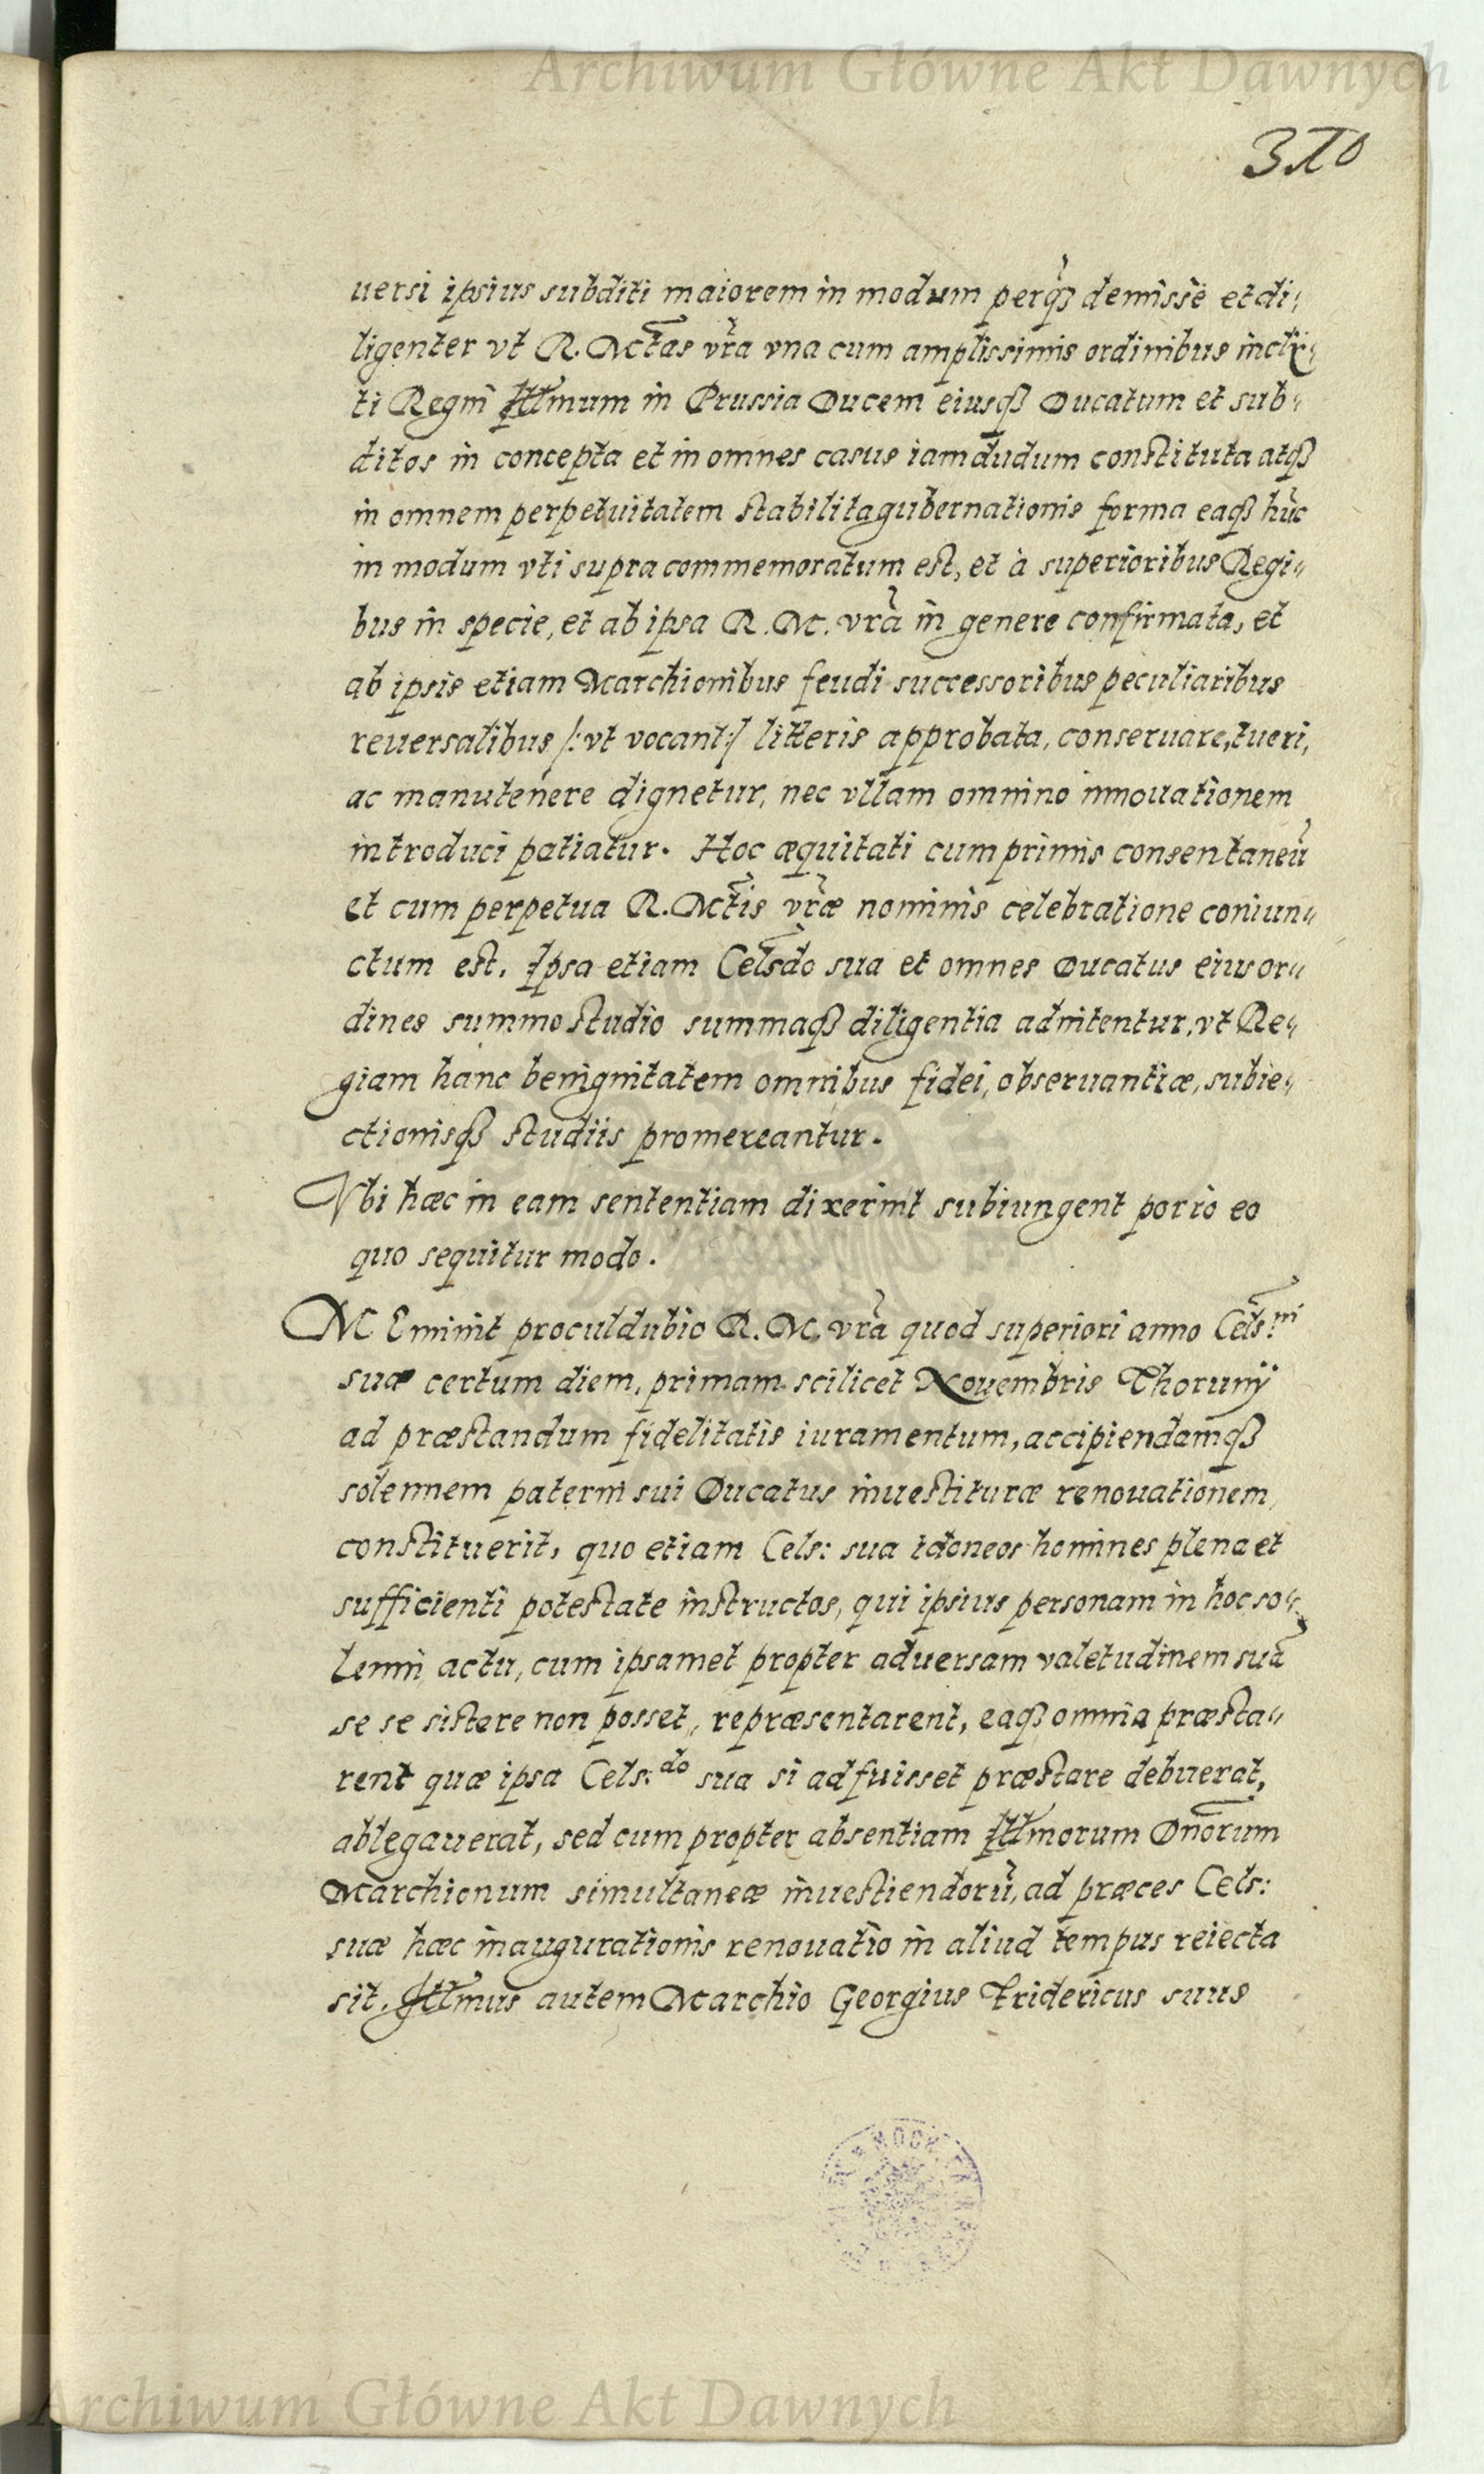 Archiwum Główne Akt Dawnych
310
uersi ipsius subditi maiorem in modum perq̃ȝ demisse et di„
ligenter vt R. Mc̃tas vr̃a vna cum amplissimis ordinibus incly„
ti Regni Illmum in Prussia Ducem eiusqȝ Ducatum et sub„
ditos in concepta et in omnes casus iamdudum constituta atqȝ
in omnem perpetuitatem stabilita gubernationis forma eaqȝ hũc
in modum vti supra commemoratum est, et à superioribus Regi„
bus in specie, et ab ipsa R. M. vrã in genere confirmata, et
ab ipsis etiam Marchionibus feudi successoribus peculiaribus
reuersalibus /: vt vocant :/ litteris approbata, conseruare, tueri,
ac manutenere dignetur, nec vllam omnino innouationem
introduci patiatur. Hoc æquitati cumprimis consentaneũ
et cum perpetua R. Mc̃tis vr̃æ nominis celebratione coniun„
ctum est. Ipsa etiam Cels̃do sua et omnes Ducatus eius or„
dines summo studio summaqȝ diligentia adnitentur, vt Re„
giam hanc benignitatem omnibus fidei, obseruantiæ, subie„
ctionisqȝ studiis promereantur.
Vbi hæc in eam sententiam dixerint subiungent porro eo
quo sequitur modo.
MEminit proculdubio R. M. vr̃a quod superiori anno Cels:ni
suæ certum diem, primam scilicet Nouembris Thorunÿ
ad præstandum fidelitatis iuramentum, accipiendamqȝ
solennem paterni sui Ducatus inuestituræ renouationem,
constituerit, quo etiam Cels: sua idoneos homines plena et
sufficienti potestate instructos, qui ipsius personam in hoc so„
lenni actu, cum ipsamet propter aduersam valetudinem suã
se se sistere non posset, repræsentarent, eaqȝ omnia præsta„
rent quæ ipsa Cels:do sua si adfuisset præstare debuerat,
ablegauerat, sed cum propter absentiam Illmorum Dnorum
Marchionum simultaneæ inuestiendorũ, ad præces Cels:
suæ hæc inaugurationis renouatio in aliud tempus reiecta
sit. Illmus autem Marchio Georgius Fridericus suus
Archiwum Główne Akt Dawnych